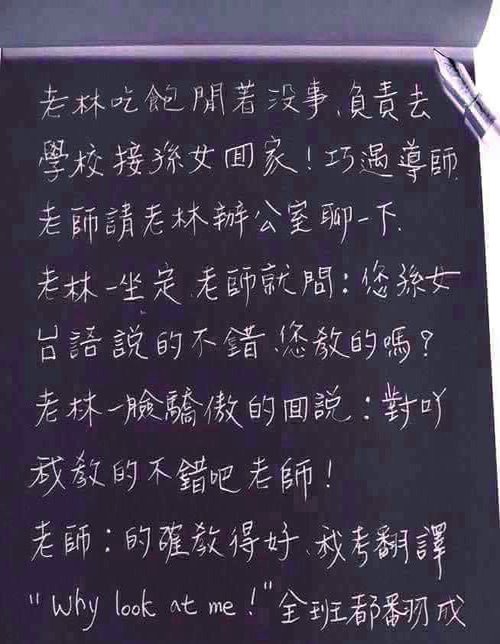 老林吃飽閒著没事、負責去
學校接孫女回家！巧遇導師、
老師請老林辦公室聊一下、
老林一坐定、老師就問：您孫女
台語說的不錯、您教的嗎？
老林一臉驕傲的回說：對吖
我教的不錯吧老師！
老師：的確教得好、我考翻譯
"Why look at me！"全班都翻成